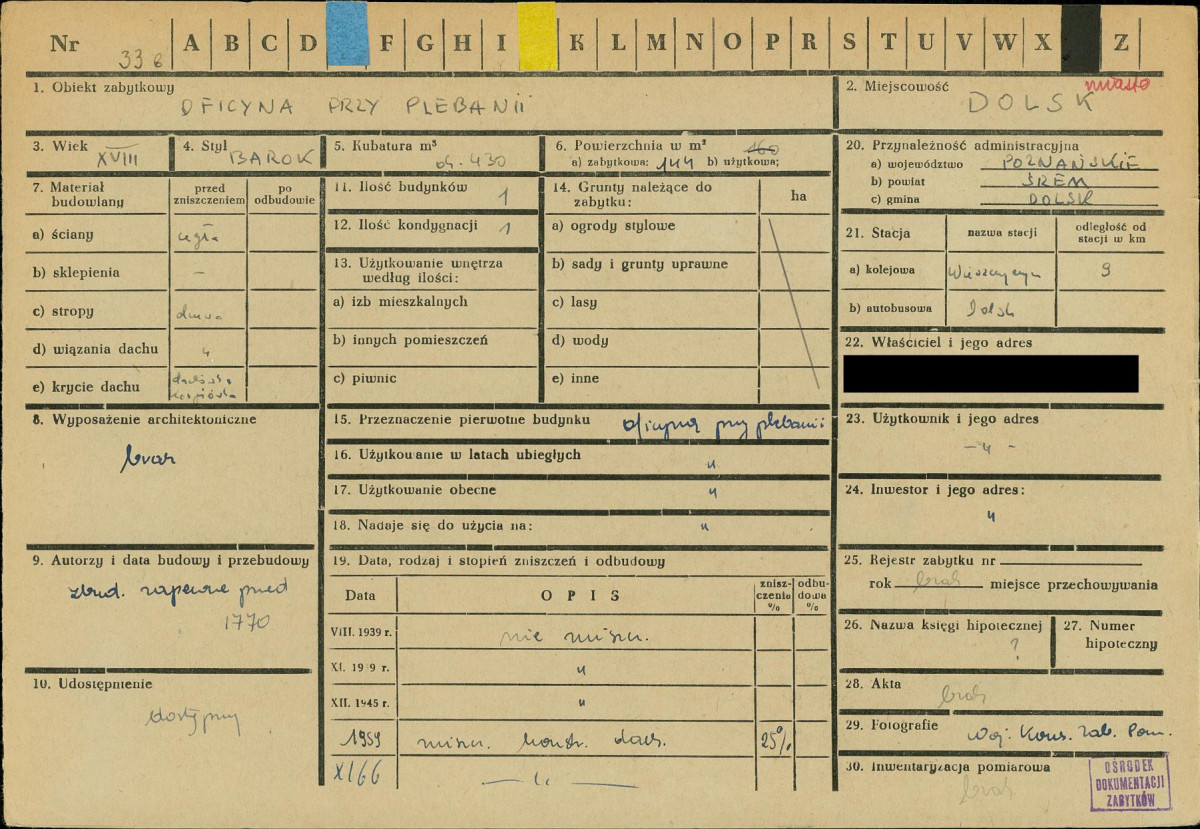 Nr 33 A B C D F G H I K L M N O P R S T U V W X Z
1. Obiekt zabytkowy
OFICYNA PRZY PLEBANII
2. Miejscowość
miasto
DOLSK
3. Wiek XVIII
4. Styl BAROK
5. Kubatura m³
ok. 430
6. Powierzchnia w m² 160
a) zabytkowa: 144 b) użytkowa;
20. Przynależność administracyjna
a) województwo POZNAŃSKIE
b) powiat ŚREM
c) gmina DOLSK
7. Materiał budowlany
przed zniszczeniem
po odbudowie
a) ściany cegła
b) sklepienia –
c) stropy drewn.
d) wiązania dachu "
e) krycie dachu dachówka
karpiówka
11. Ilość budynków 1
12. Ilość kondygnacji 1
13. Użytkowanie wnętrza
według ilości:
a) izb mieszkalnych
b) innych pomieszczeń
c) piwnic
14. Grunty należące do
zabytku:
ha
a) ogrody stylowe
b) sady i grunty uprawne
c) lasy
d) wody
e) inne
21. Stacja
nazwa stacji
odległość od
stacji w km
a) kolejowa 9
b) autobusowa Dolsk
22. Właściciel i jego adres
8. Wyposażenie architektoniczne
brak
15. Przeznaczenie pierwotne budynku oficyna przy plebanii
16. Użytkowanie w latach ubiegłych "
17. Użytkowanie obecne "
18. Nadaje się do użycia na: "
23. Użytkownik i jego adres
– " –
24. Inwestor i jego adres:
"
9. Autorzy i data budowy i przebudowy
zbud. zapewne przed
1770
10. Udostępnienie
dostępny
19. Data, rodzaj i stopień zniszczeń i odbudowy
Data
OPIS
znisz-
czenia
%
odbu-
dowa
%
VIII. 1939 r. nie niszcz.
XI. 19 9 r. "
XII. 1945 r. "
1959 niszcz. konstr. dach. 25%
XI 66 – " –
25. Rejestr zabytku nr
rok brak miejsce przechowywania
26. Nazwa księgi hipotecznej
?
27. Numer
hipoteczny
28. Akta
brak
29. Fotografie Woj. Kons. Zab. Pozn.
30. Inwentaryzacja pomiarowa
brak
OŚRODEK
DOKUMENTACJI
ZABYTKÓW